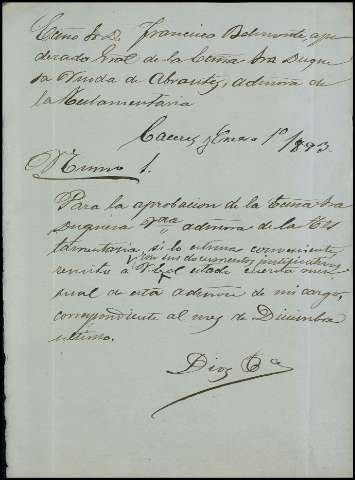 Exmo Sr D. Francisco Belmonte, apo
derado Gral de la Exma Sra Duque
sa Viuda de Abrantes, admora de
la Testamentaria
Caceres y Enero 1º 1893.
Numo 1.
Para la aprobacion de la Exma Sra
Duquesa Vda admora de la Tes
tamentaria, si lo estima conveniente,
con sus documentos justificativos
remito á V. el estado cuenta men
sual de esta admon de mi cargo,
correspondiente al mes de Diciembre
ultimo.
Dios &a